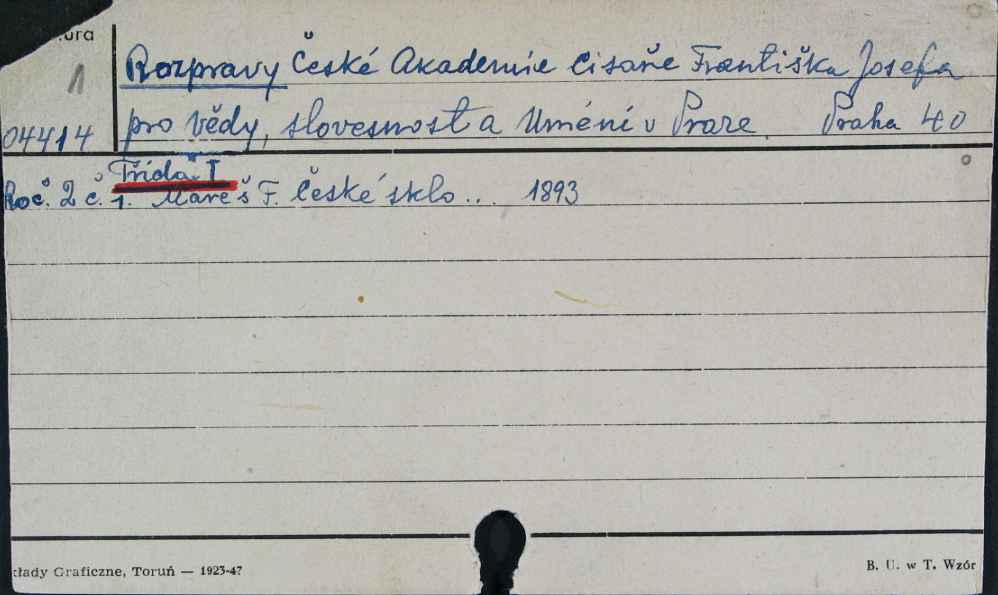 ura
1
Rozpravy České Akademie Cisaře Františka Josefa
04414 pro vědy, slovesnost a Uméní v Praze. Praha 40
Třída I
Roč. 2 č. 1. Mareš F. České sklo .. 1893
kłady Graficzne, Toruń — 1923-47
B. U. w T. Wzór